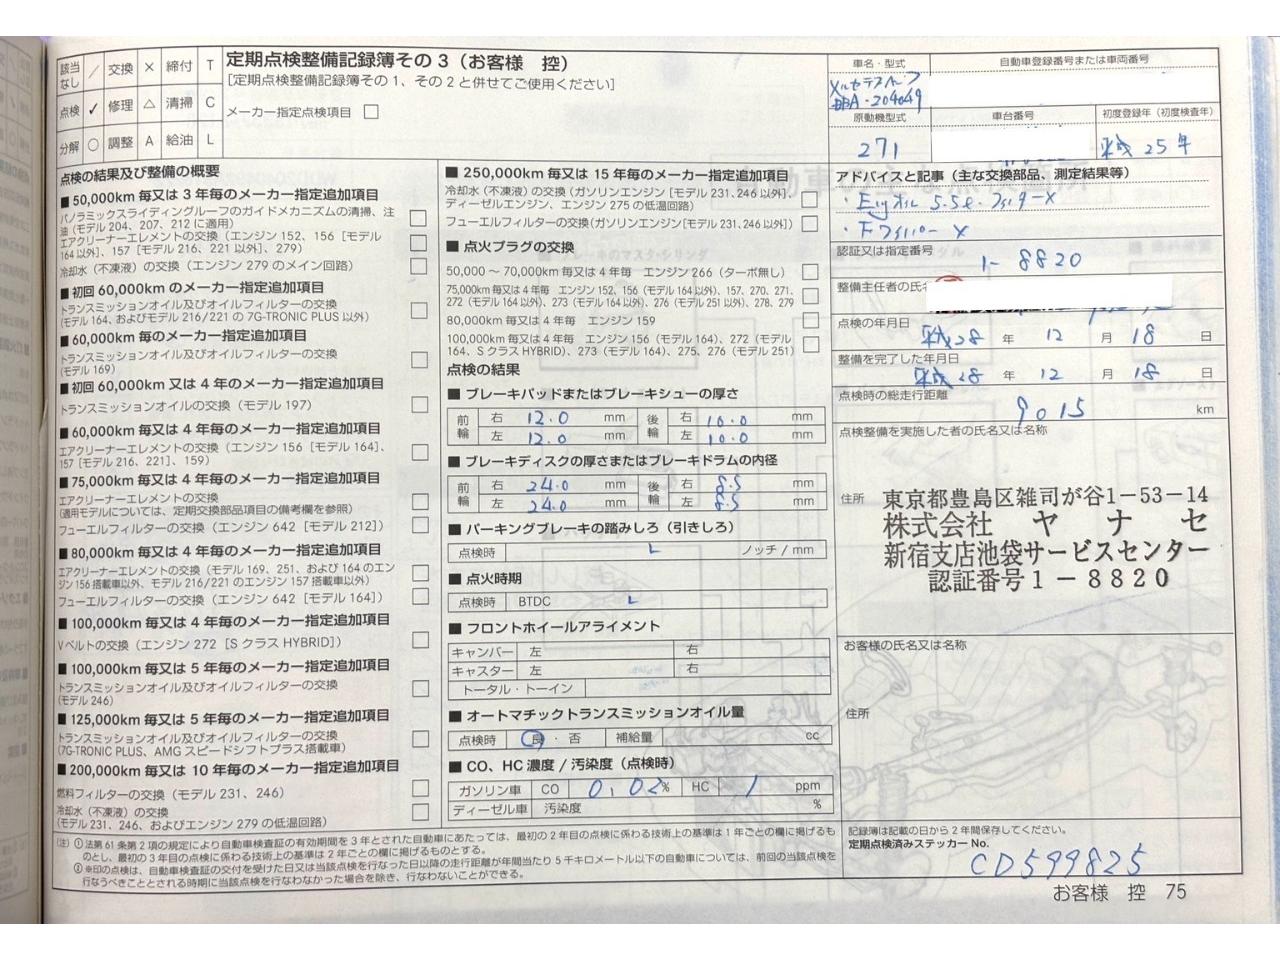 該当なし ／ 交換 × 締付 T
点検 ✓ 修理 △ 清掃 C
分解 ○ 調整 A 給油 L
定期点検整備記録簿その3（お客様 控）
［定期点検整備記録簿その1、その2と併せてご使用ください］
メーカー指定点検項目 □
車名・型式
DBA-204049
自動車登録番号または車両番号
原動機型式
271
車台番号
初度登録年（初度検査年）
平成25年
点検の結果及び整備の概要
■50,000km 毎又は 3 年毎のメーカー指定追加項目
パノラミックスライディングルーフのガイドメカニズムの清掃、注
油（モデル 204、207、212 に適用）
エアクリーナーエレメントの交換（エンジン 152、156［モデル
164 以外］、157［モデル 216、221 以外］、279）
冷却水（不凍液）の交換（エンジン 279 のメイン回路）
■初回 60,000km のメーカー指定追加項目
トランスミッションオイル及びオイルフィルターの交換
（モデル 164、およびモデル 216/221 の 7G-TRONIC PLUS 以外）
■60,000km 毎のメーカー指定追加項目
トランスミッションオイル及びオイルフィルターの交換
（モデル 169）
■初回 60,000km 又は 4 年毎のメーカー指定追加項目
トランスミッションオイルの交換（モデル 197）
■60,000km 毎又は 4 年毎のメーカー指定追加項目
エアクリーナーエレメントの交換（エンジン 156［モデル 164］、
157［モデル 216、221］、159）
■75,000km 毎又は 4 年毎のメーカー指定追加項目
エアクリーナーエレメントの交換
（適用モデルについては、定期交換部品項目の備考欄を参照）
フューエルフィルターの交換（エンジン 642［モデル 212］）
■80,000km 毎又は 4 年毎のメーカー指定追加項目
エアクリーナーエレメントの交換（モデル 169、251、および 164 のエン
ジン 156 搭載車以外、モデル 216/221 のエンジン 157 搭載車以外）
フューエルフィルターの交換（エンジン 642［モデル 164］）
■100,000km 毎又は 4 年毎のメーカー指定追加項目
Vベルトの交換（エンジン 272［S クラス HYBRID］）
■100,000km 毎又は 5 年毎のメーカー指定追加項目
トランスミッションオイル及びオイルフィルターの交換
（モデル 246）
■125,000km 毎又は 5 年毎のメーカー指定追加項目
トランスミッションオイル及びオイルフィルターの交換
（7G-TRONIC PLUS、AMG スピードシフトプラス搭載車）
■200,000km 毎又は 10 年毎のメーカー指定追加項目
燃料フィルターの交換（モデル 231、246）
冷却水（不凍液）の交換
（モデル 231、246、およびエンジン 279 の低温回路）
■250,000km 毎又は 15 年毎のメーカー指定追加項目
冷却水（不凍液）の交換（ガソリンエンジン［モデル 231、246 以外］、
ディーゼルエンジン、エンジン 275 の低温回路）
フューエルフィルターの交換（ガソリンエンジン［モデル 231、246 以外］）
■点火プラグの交換
50,000 ～ 70,000km 毎又は 4 年毎 エンジン 266（ターボ無し）
75,000km 毎又は 4 年毎 エンジン 152、156（モデル 164 以外）、157、270、271、
272（モデル 164 以外）、273（モデル 164 以外）、276（モデル 251 以外）、278、279
80,000km 毎又は 4 年毎 エンジン 159
100,000km 毎又は 4 年毎 エンジン 156（モデル 164）、272（モデル
164、S クラス HYBRID）、273（モデル 164）、275、276（モデル 251）
点検の結果
■ブレーキパッドまたはブレーキシューの厚さ
前輪 右 12.0 mm 後輪 右 10.0 mm
左 12.0 mm 左 10.0 mm
■ブレーキディスクの厚さまたはブレーキドラムの内径
前輪 右 24.0 mm 後輪 右 8.5 mm
左 24.0 mm 左 8.5 mm
■パーキングブレーキの踏みしろ（引きしろ）
点検時 レ ノッチ / mm
■点火時期
点検時 BTDC レ
■フロントホイールアライメント
キャンバー 左 右
キャスター 左 右
トータル・トーイン
■オートマチックトランスミッションオイル量
点検時 良・否 補給量 cc
■CO、HC 濃度 / 汚染度（点検時）
ガソリン車 CO 0.02 % HC 1 ppm
ディーゼル車 汚染度 %
アドバイスと記事（主な交換部品、測定結果等）
認証又は指定番号
1-8820
整備主任者の氏名
点検の年月日
平成28 年 12 月 18 日
整備を完了した年月日
平成28 年 12 月 18 日
点検時の総走行距離
9015 km
点検整備を実施した者の氏名又は名称
住所
東京都豊島区雑司が谷1－53－14
株式会社 ヤ ナ セ
新宿支店池袋サービスセンター
認証番号1－8820
お客様の氏名又は名称
住所
（注）①法第 61 条第 2 項の規定により自動車検査証の有効期間を 3 年とされた自動車にあたっては、最初の 2 年目の点検に係わる技術上の基準は 1 年ごとの欄に掲げるも
のとし、最初の 3 年目の点検に係わる技術上の基準は 2 年ごとの欄に掲げるものとする。
②※印の点検は、自動車検査証の交付を受けた日又は当該点検を行なった日以降の走行距離が年間当たり 5 千キロメートル以下の自動車については、前回の当該点検を
行なうべきこととされる時期に当該点検を行なわなかった場合を除き、行なわないことができる。
記録簿は記載の日から 2 年間保存してください。
定期点検済みステッカー No.
CD599825
お客様 控 75